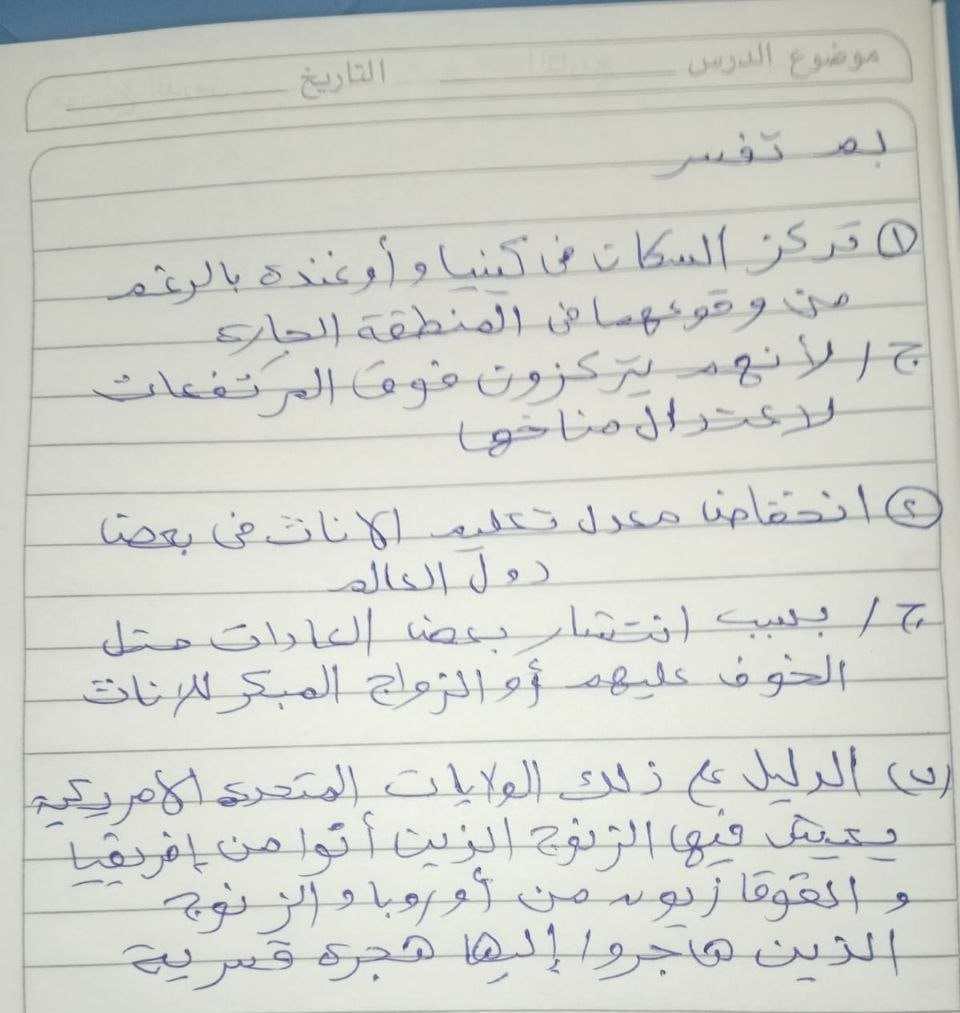 موضوع الدرس التاريخ
بم تفسر
① تركز السكان فى كينيا وأوغنده بالرغم
من وقوعهما فى المنطقة الحاره
ج / لأنهم يتركزون فوق المرتفعات
لاعتدال مناخها
② انخفاض معدل تعليم الاناث فى بعض
دول العالم
ج / بسبب انتشار بعض العادات مثل
الخوف عليهم أو الزواج المبكر للاناث
(ب) الدليل على ذلك الولايات المتحده الأمريكيه
يعيش فيها الزنوج الذين أتوا من إفريقيا
و القوقازيون من أوروبا و الزنوج
الذين هاجروا إليها هجره قسرية